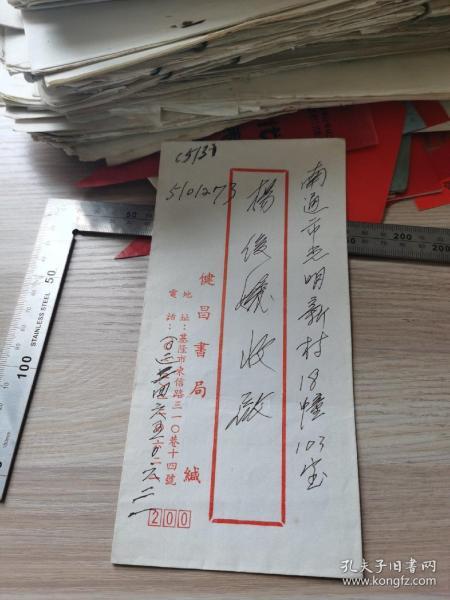 南通市光明新村18幢103室
楊俊儀收啟
510273
健昌書局 緘
地址：基隆市東信路三一〇巷十四號
電話：
200
STAINLESS STEEL
50
100
200
孔夫子旧书网
www.kongfz.com